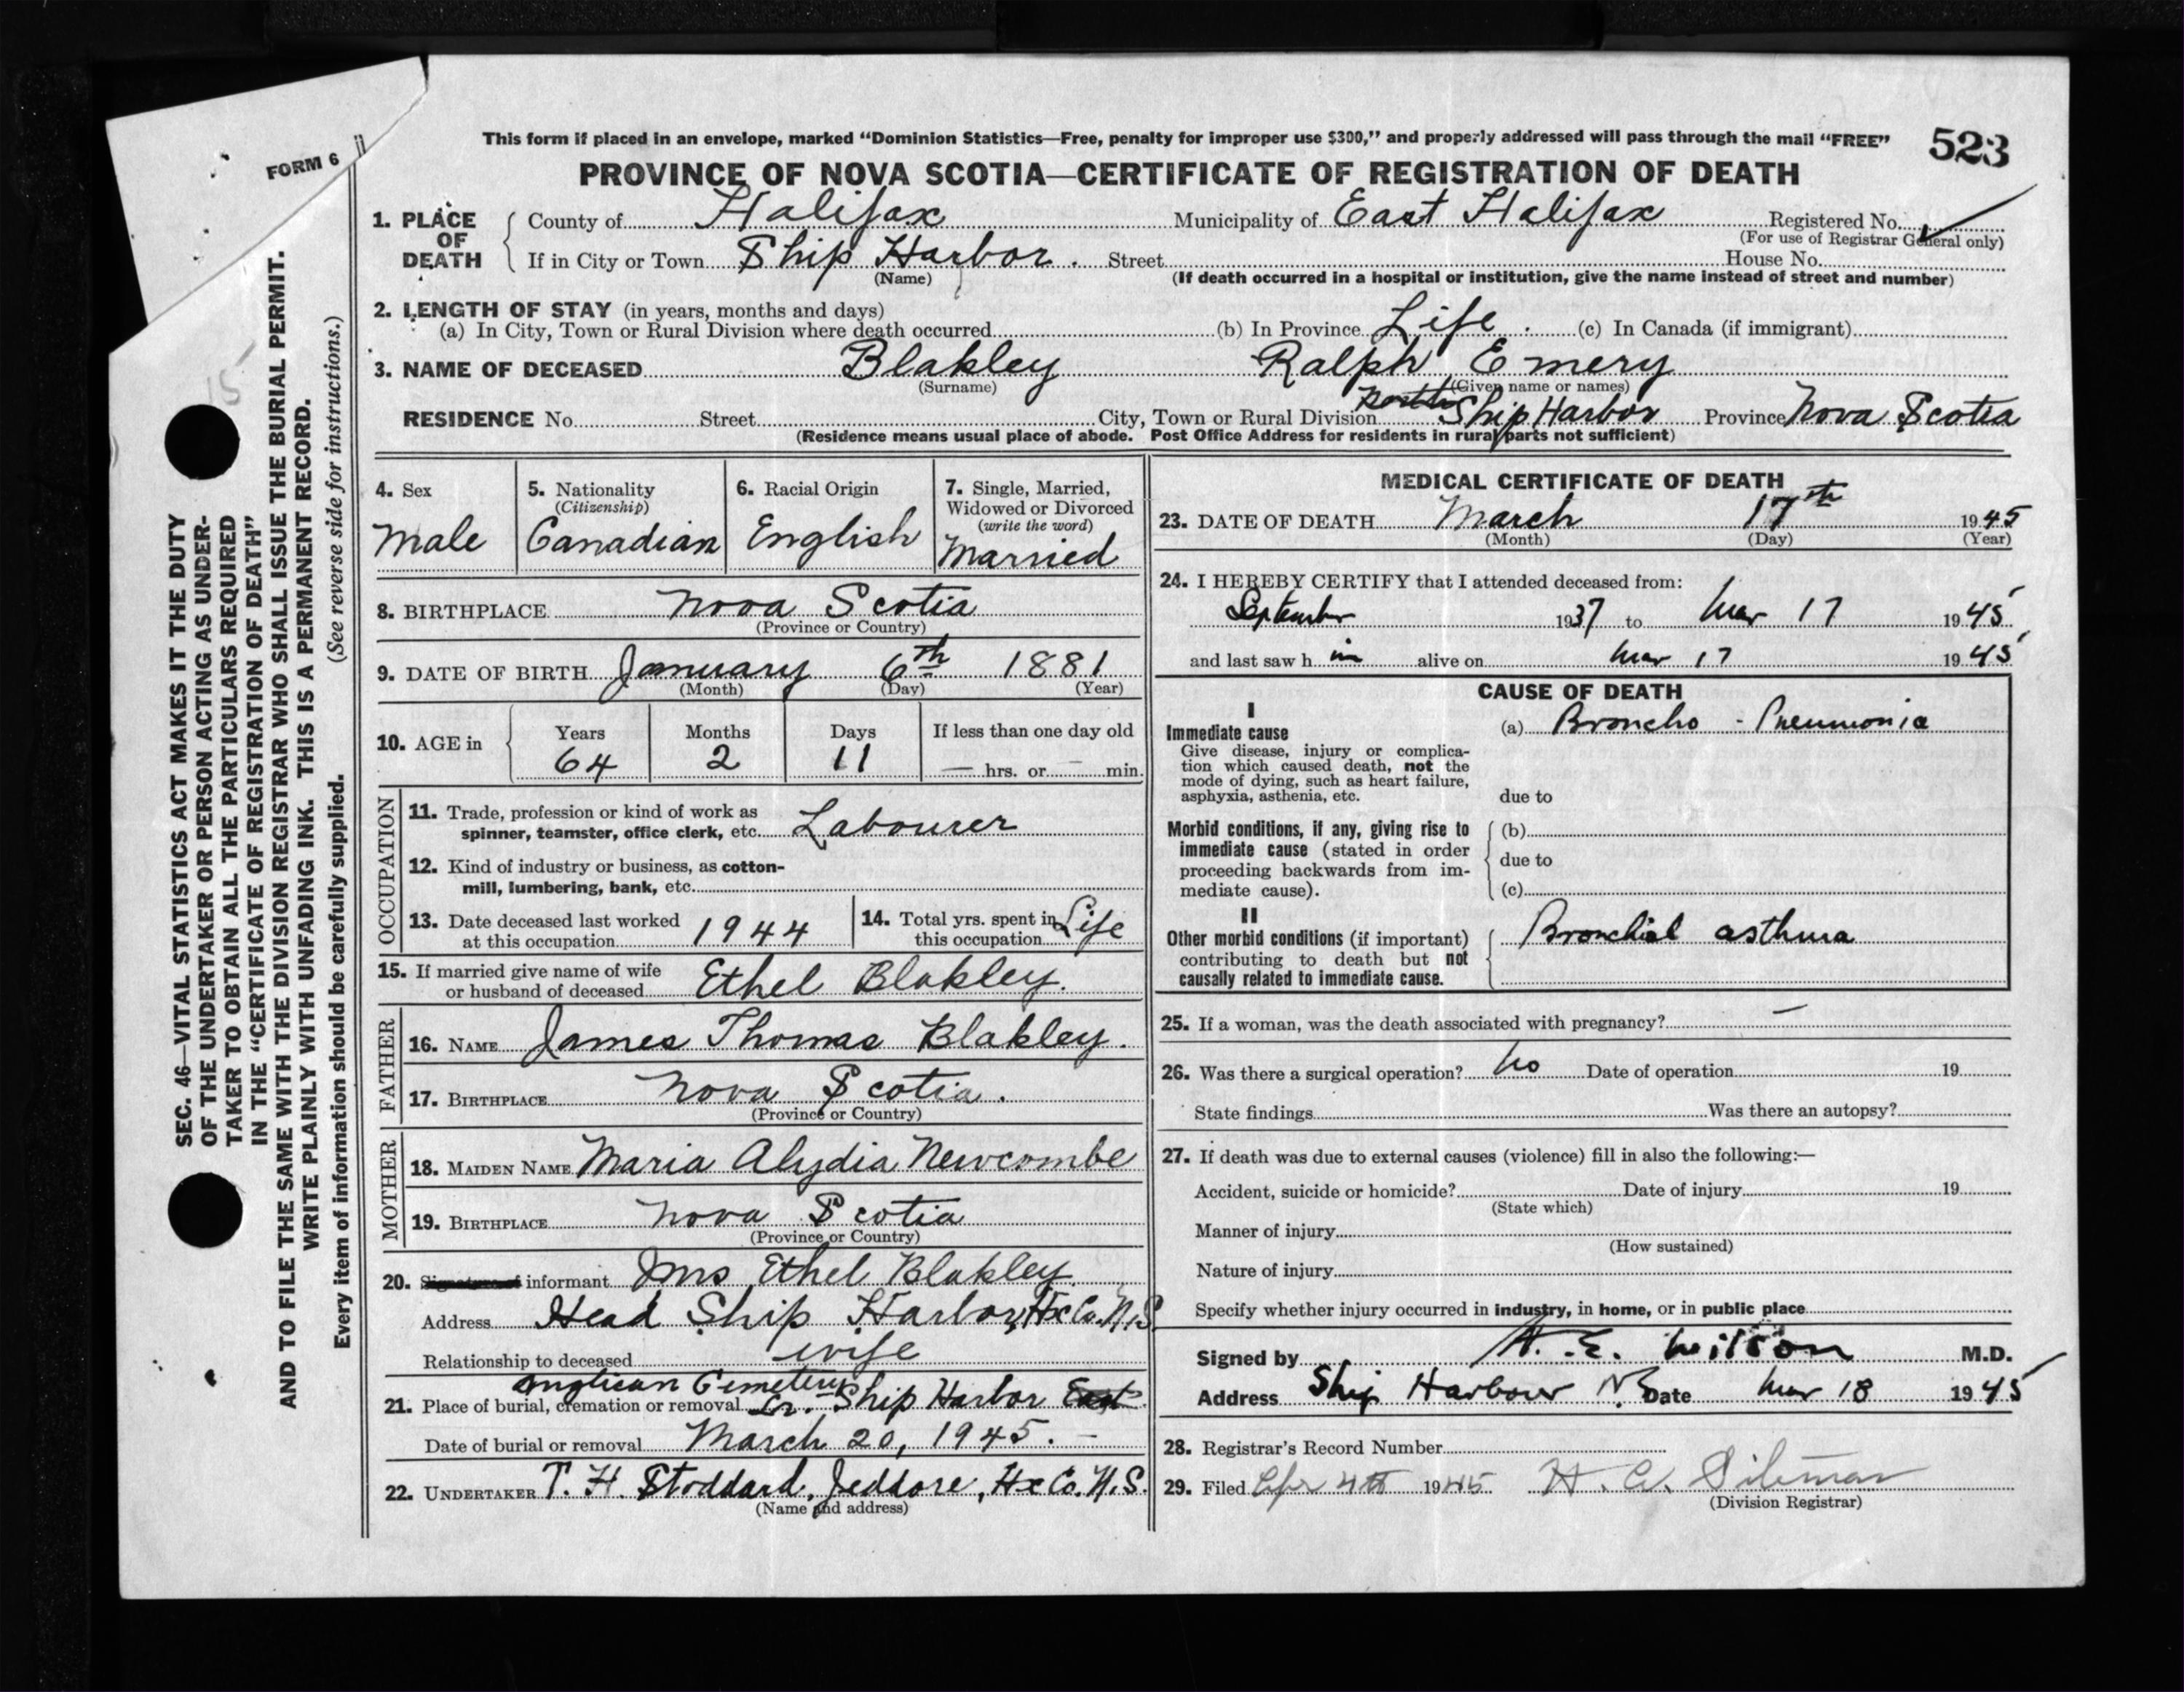 This form if placed in an envelope, marked “Dominion Statistics—Free, penalty for improper use $300,” and properly addressed will pass through the mail “FREE”
523
FORM 6
PROVINCE OF NOVA SCOTIA—CERTIFICATE OF REGISTRATION OF DEATH
1. PLACE OF DEATH
County of Halifax Municipality of East Halifax Registered No.
(For use of Registrar General only)
If in City or Town Ship Harbor. Street House No.
(Name) (If death occurred in a hospital or institution, give the name instead of street and number)
2. LENGTH OF STAY (in years, months and days)
(a) In City, Town or Rural Division where death occurred (b) In Province Life. (c) In Canada (if immigrant)
3. NAME OF DECEASED Blakley Ralph Emery
(Surname) (Given name or names)
RESIDENCE No. Street City, Town or Rural Division Ship Harbor Province Nova Scotia
(Residence means usual place of abode. Post Office Address for residents in rural parts not sufficient)
4. Sex
Male
5. Nationality
(Citizenship)
Canadian
6. Racial Origin
English
7. Single, Married,
Widowed or Divorced
(write the word)
Married
8. BIRTHPLACE Nova Scotia
(Province or Country)
9. DATE OF BIRTH January 6th 1881
(Month) (Day) (Year)
10. AGE in
Years Months Days If less than one day old
64 2 11 — hrs. or — min.
OCCUPATION
11. Trade, profession or kind of work as
spinner, teamster, office clerk, etc. Labourer
12. Kind of industry or business, as cotton-
mill, lumbering, bank, etc.
13. Date deceased last worked
at this occupation 1944
14. Total yrs. spent in
this occupation Life
15. If married give name of wife
or husband of deceased Ethel Blakley.
FATHER
16. NAME James Thomas Blakley.
17. BIRTHPLACE Nova Scotia.
(Province or Country)
MOTHER
18. MAIDEN NAME Maria Alydia Newcombe
19. BIRTHPLACE Nova Scotia
(Province or Country)
20. Signature of informant Mrs Ethel Blakley
Address Head Ship Harbor, Hx Co. N.S.
Relationship to deceased wife
Anglican Cemetery
21. Place of burial, cremation or removal Lr. Ship Harbor East
Date of burial or removal March 20, 1945. —
22. UNDERTAKER T. H. Stoddard, Jeddore, Hx Co. N.S.
(Name and address)
MEDICAL CERTIFICATE OF DEATH
23. DATE OF DEATH March 17th 1945
(Month) (Day) (Year)
24. I HEREBY CERTIFY that I attended deceased from:
September 1937 to Mar 17 1945
and last saw him alive on Mar 17 1945
CAUSE OF DEATH
I
Immediate cause
Give disease, injury or complica-
tion which caused death, not the
mode of dying, such as heart failure,
asphyxia, asthenia, etc.
(a) Broncho - Pneumonia
due to
Morbid conditions, if any, giving rise to
immediate cause (stated in order
proceeding backwards from im-
mediate cause).
(b)
due to
(c)
II
Other morbid conditions (if important)
contributing to death but not
causally related to immediate cause.
Bronchial asthma
25. If a woman, was the death associated with pregnancy? —
26. Was there a surgical operation? No Date of operation 19
State findings Was there an autopsy?
27. If death was due to external causes (violence) fill in also the following:—
Accident, suicide or homicide? Date of injury 19
(State which)
Manner of injury
(How sustained)
Nature of injury
Specify whether injury occurred in industry, in home, or in public place
Signed by A. E. Wilson M.D.
Address Ship Harbour N.S. Date Mar 18 1945
28. Registrar's Record Number
29. Filed Apr 4th 1945 H. A.
(Division Registrar)
SEC. 46—VITAL STATISTICS ACT MAKES IT THE DUTY
OF THE UNDERTAKER OR PERSON ACTING AS UNDER-
TAKER TO OBTAIN ALL THE PARTICULARS REQUIRED
IN THE “CERTIFICATE OF REGISTRATION OF DEATH”
AND TO FILE THE SAME WITH THE DIVISION REGISTRAR WHO SHALL ISSUE THE BURIAL PERMIT.
WRITE PLAINLY WITH UNFADING INK. THIS IS A PERMANENT RECORD.
Every item of information should be carefully supplied. (See reverse side for instructions.)
15